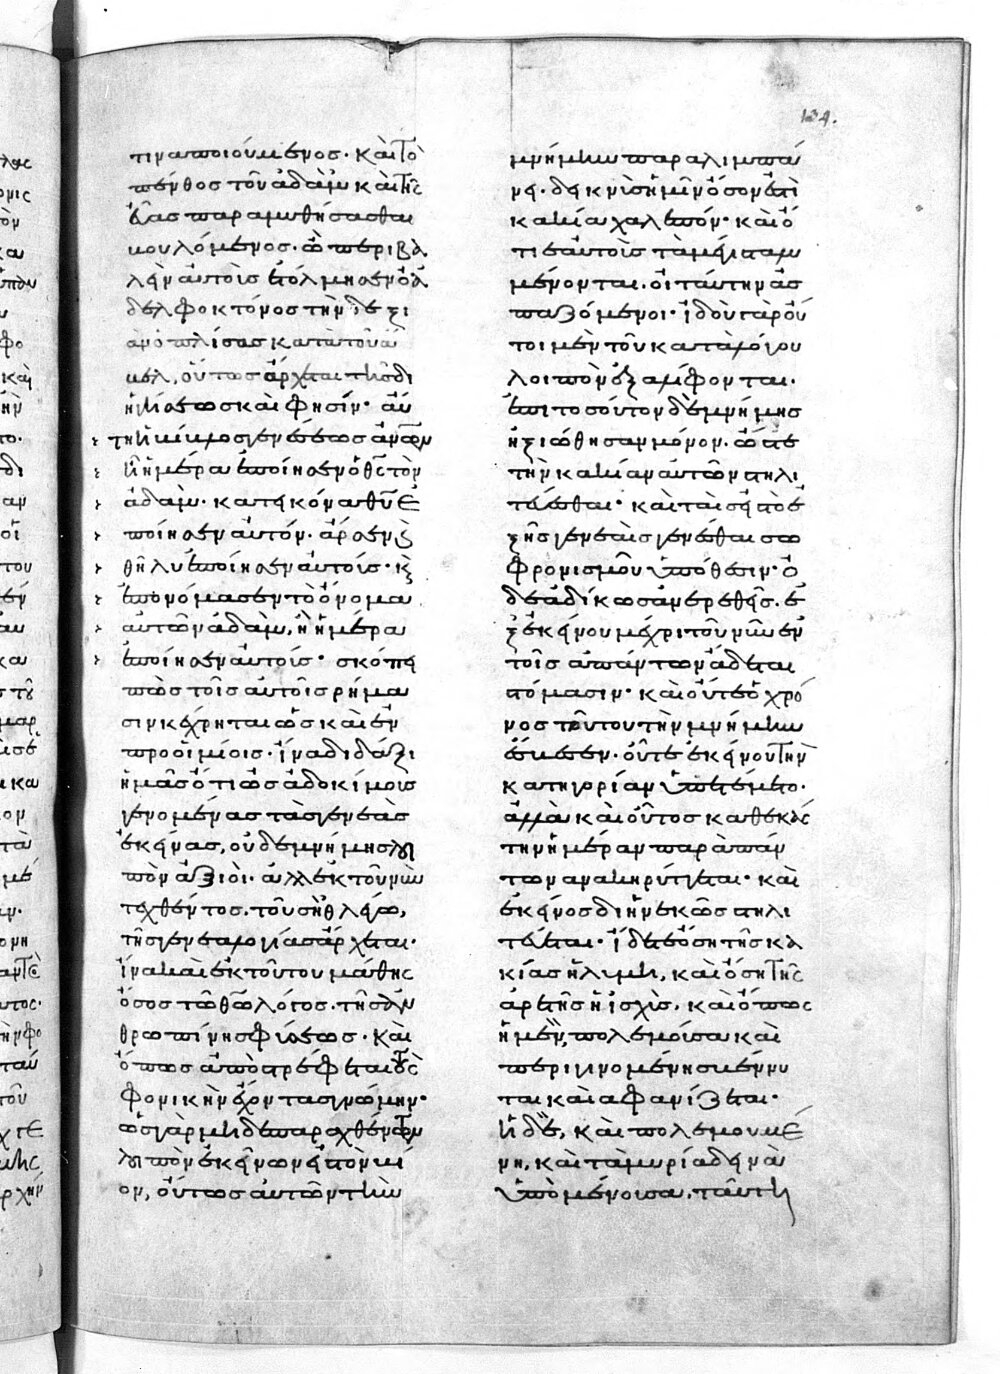 124.
τινα ποιούμενος· καὶ τὸ
πένθος τοῦ ἀδὰμ καὶ τῆς
εὔας παραμυθήσασθαι
βουλόμενος· ᾧ περιβα
λεῖν αὐτοὺς ἐτόλμησεν ὁ ἀ
δελφοκτόνος τὴν δεξι
ὰν ὁπλίσας κατὰ τοῦ ἄ
βελ, οὕτως ἄρχεται τῆς δι
ηγήσεως καὶ φησίν· αὕ
τη ἡ βίβλος γενέσεως ἀνθρώπων
ᾗ ἡμέρα ἐποίησεν ὁ θσ τὸν
ἀδάμ· κατ' εἰκόνα θυ ἐ
ποίησεν αὐτόν· ἄρσεν καὶ
θῆλυ ἐποίησεν αὐτούς· καὶ
ἐπονόμασεν τὸ ὄνομα
αὐτῶν ἀδάμ, ᾗ ἡμέρα
ἐποίησεν αὐτούς· σκόπει
πῶς τοῖς αὐτοῖς ῥήμα
σιν κέχρηται ὡς καὶ ἐν
προοιμίοις· ἵνα διδάξη
ἡμᾶς ὅτι ὡς ἀδοκίμους
γενομένας τὰς γενεὰς
ἐκείνας, οὐδὲ μνήμης λοι
πὸν ἀξιοῖ· ἀλλ' ἐκ τοῦ νῦν
τεχθέντος, τοῦ σὴθ λέγω,
τῆς γενεαλογίας ἄρχεται·
ἵνα καὶ ἐκ τούτου μάθης
ὅσος τῷ θῷ λόγος, τῆς ἀν
θρωπίνης φύσεως· καὶ
ὅπως ἀποστρέφεται τοὺς
φονικὴν ἔχοντας γνώμην·
ὡς γὰρ μηδὲ παραχθέντων
λοιπὸν ἐκείνων εἰς τὸν βί
ον, οὕτως αὐτῶν τὴν
μνήμην παραλιμπά
νει· δεικνὺς ἡμῖν ὅσον ἐστὶ
κακία χαλεπόν· καὶ ὅ
τι ἑαυτοῖς τὰ μέγιστα λυ
μαίνονται· οἱ ταύτην ἀσ
παζόμενοι· ἰδοὺ γὰρ οὗ
τοι μὲν τοῦ καταλόγου
λοιπὸν ἐξαλείφονται·
ἐπὶ τοσοῦτον δὲ μνήμης
ἠξιώθησαν μόνον· ὥστε
τὴν κακίαν αὐτῶν στηλι
τεύεσθαι· καὶ ταῖς εἰς τὸ ἑ
ξῆς γενεαῖς γενέσθαι σω
φρονισμοῦ ὑπόθεσιν· ὁ
δὲ ἀδίκως ἀναιρεθεὶς. ἐ
ξ ἐκείνου μέχρι τοῦ νῦν ἐν
τοῖς ἁπάντων ἄδεται
στόμασιν· καὶ οὔτε ὁ χρό
νος τούτου τὴν μνήμην
ἔσβεσεν· οὔτε ἐκείνου τὴν
κατηγορίαν ὑπετέμετο·
ἀλλὰ καὶ οὗτος καθεκάσ
την ἡμέραν παρὰ πάν
των ἀνακηρύττεται· καὶ
ἐκεῖνος διηνεκῶς στηλι
τεύεται· ἴδετε ὅση τῆς κα
κίας ἡ λύμη, καὶ ὅση τῆς
ἀρετῆς ἡ ἰσχύς, καὶ ὅπως
ἡ μὲν, πολεμοῦσα καὶ
περιγινομένη σβέννυ
ται καὶ ἀφανίζεται·
ἡ δὲ, καὶ πολεμουμέ
νη, καὶ τὰ μυρία δεινὰ
ὑπομένουσα, ταύτη